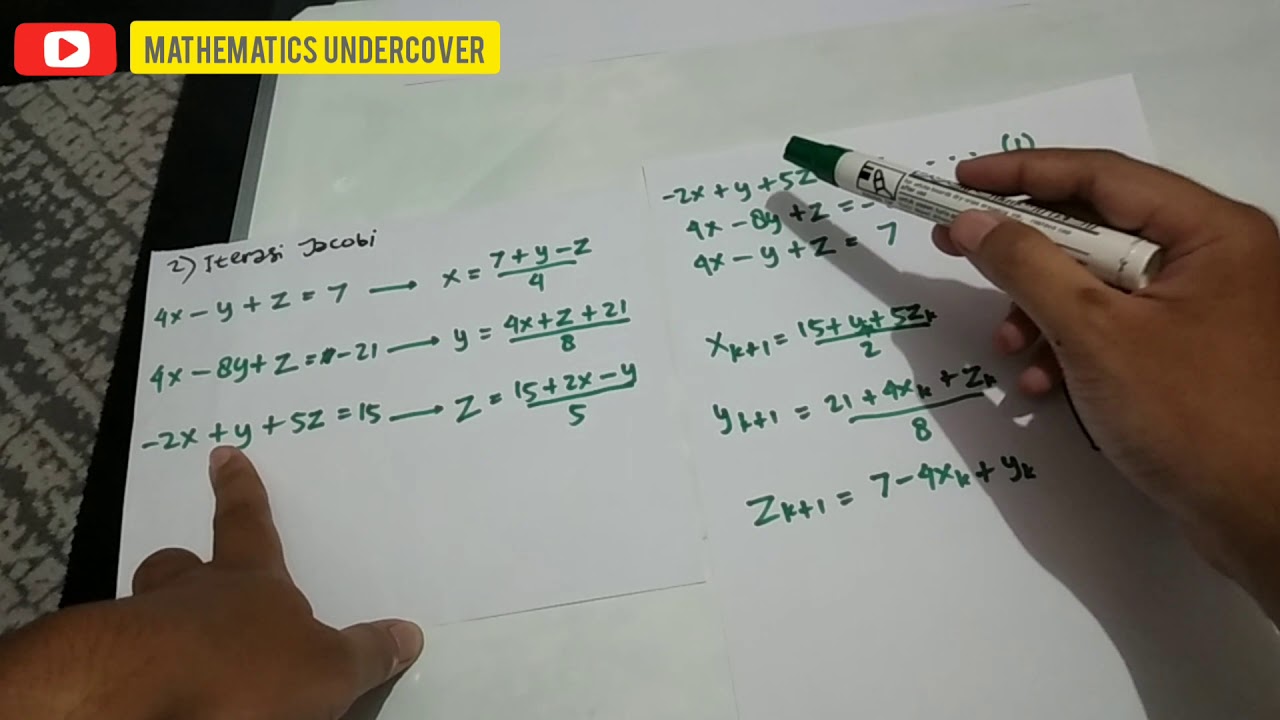 MATHEMATICS UNDERCOVER
2) Iterasi Jacobi
4x - y + z = 7 → x = (7 + y - z)/4
4x - 8y + z = -21 → y = (4x + z + 21)/8
-2x + y + 5z = 15 → z = (15 + 2x - y)/5
-2x + y + 5z ... (1)
4x - 8y + z = -
4x - y + z = 7
x_{k+1} = (15 + y_k + 5z_k)/2
y_{k+1} = (21 + 4x_k + z_k)/8
z_{k+1} = 7 - 4x_k + y_k